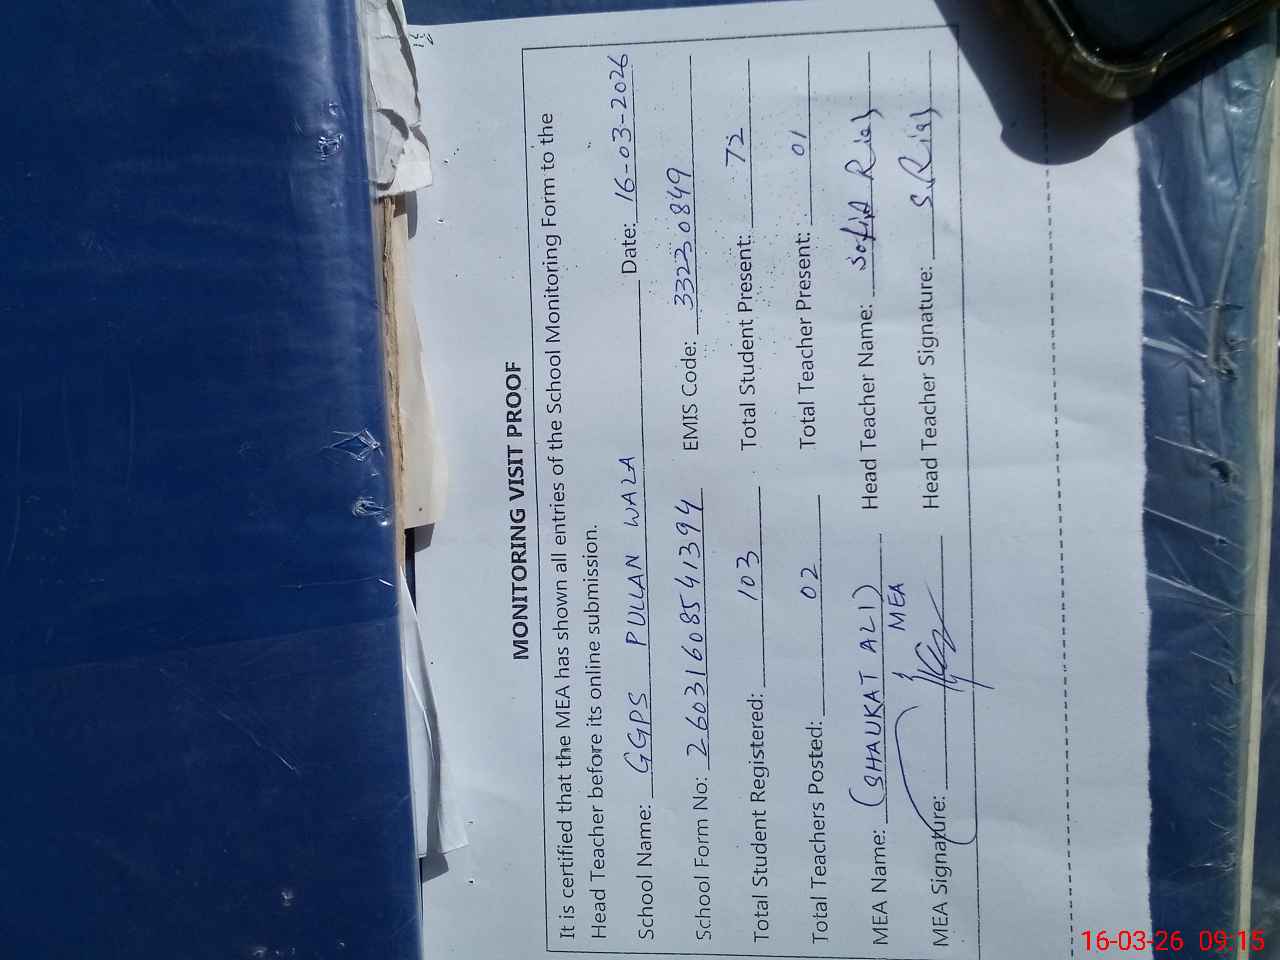 MONITORING VISIT PROOF
It is certified that the MEA has shown all entries of the School Monitoring Form to the
Head Teacher before its online submission.
School Name: GGPS PULLAN WALA Date: 16-03-2026
School Form No: 260316085 41394 EMIS Code: 33230849
Total Student Registered: 103 Total Student Present: 72
Total Teachers Posted: 02 Total Teacher Present: 01
MEA Name: (SHAUKAT ALI) Head Teacher Name: Sofia Riaz
MEA
MEA Signature: Head Teacher Signature: S.Riaz
16-03-26 09:15